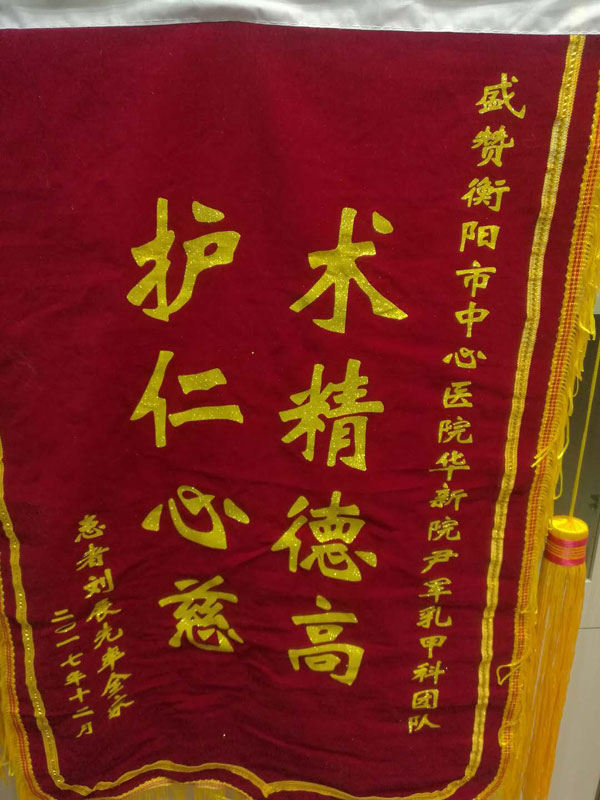 盛赞衡阳市中心医院华新院尹军乳甲科团队
术精德高
护仁心慈
患者刘辰光率全家
二〇一七年十二月